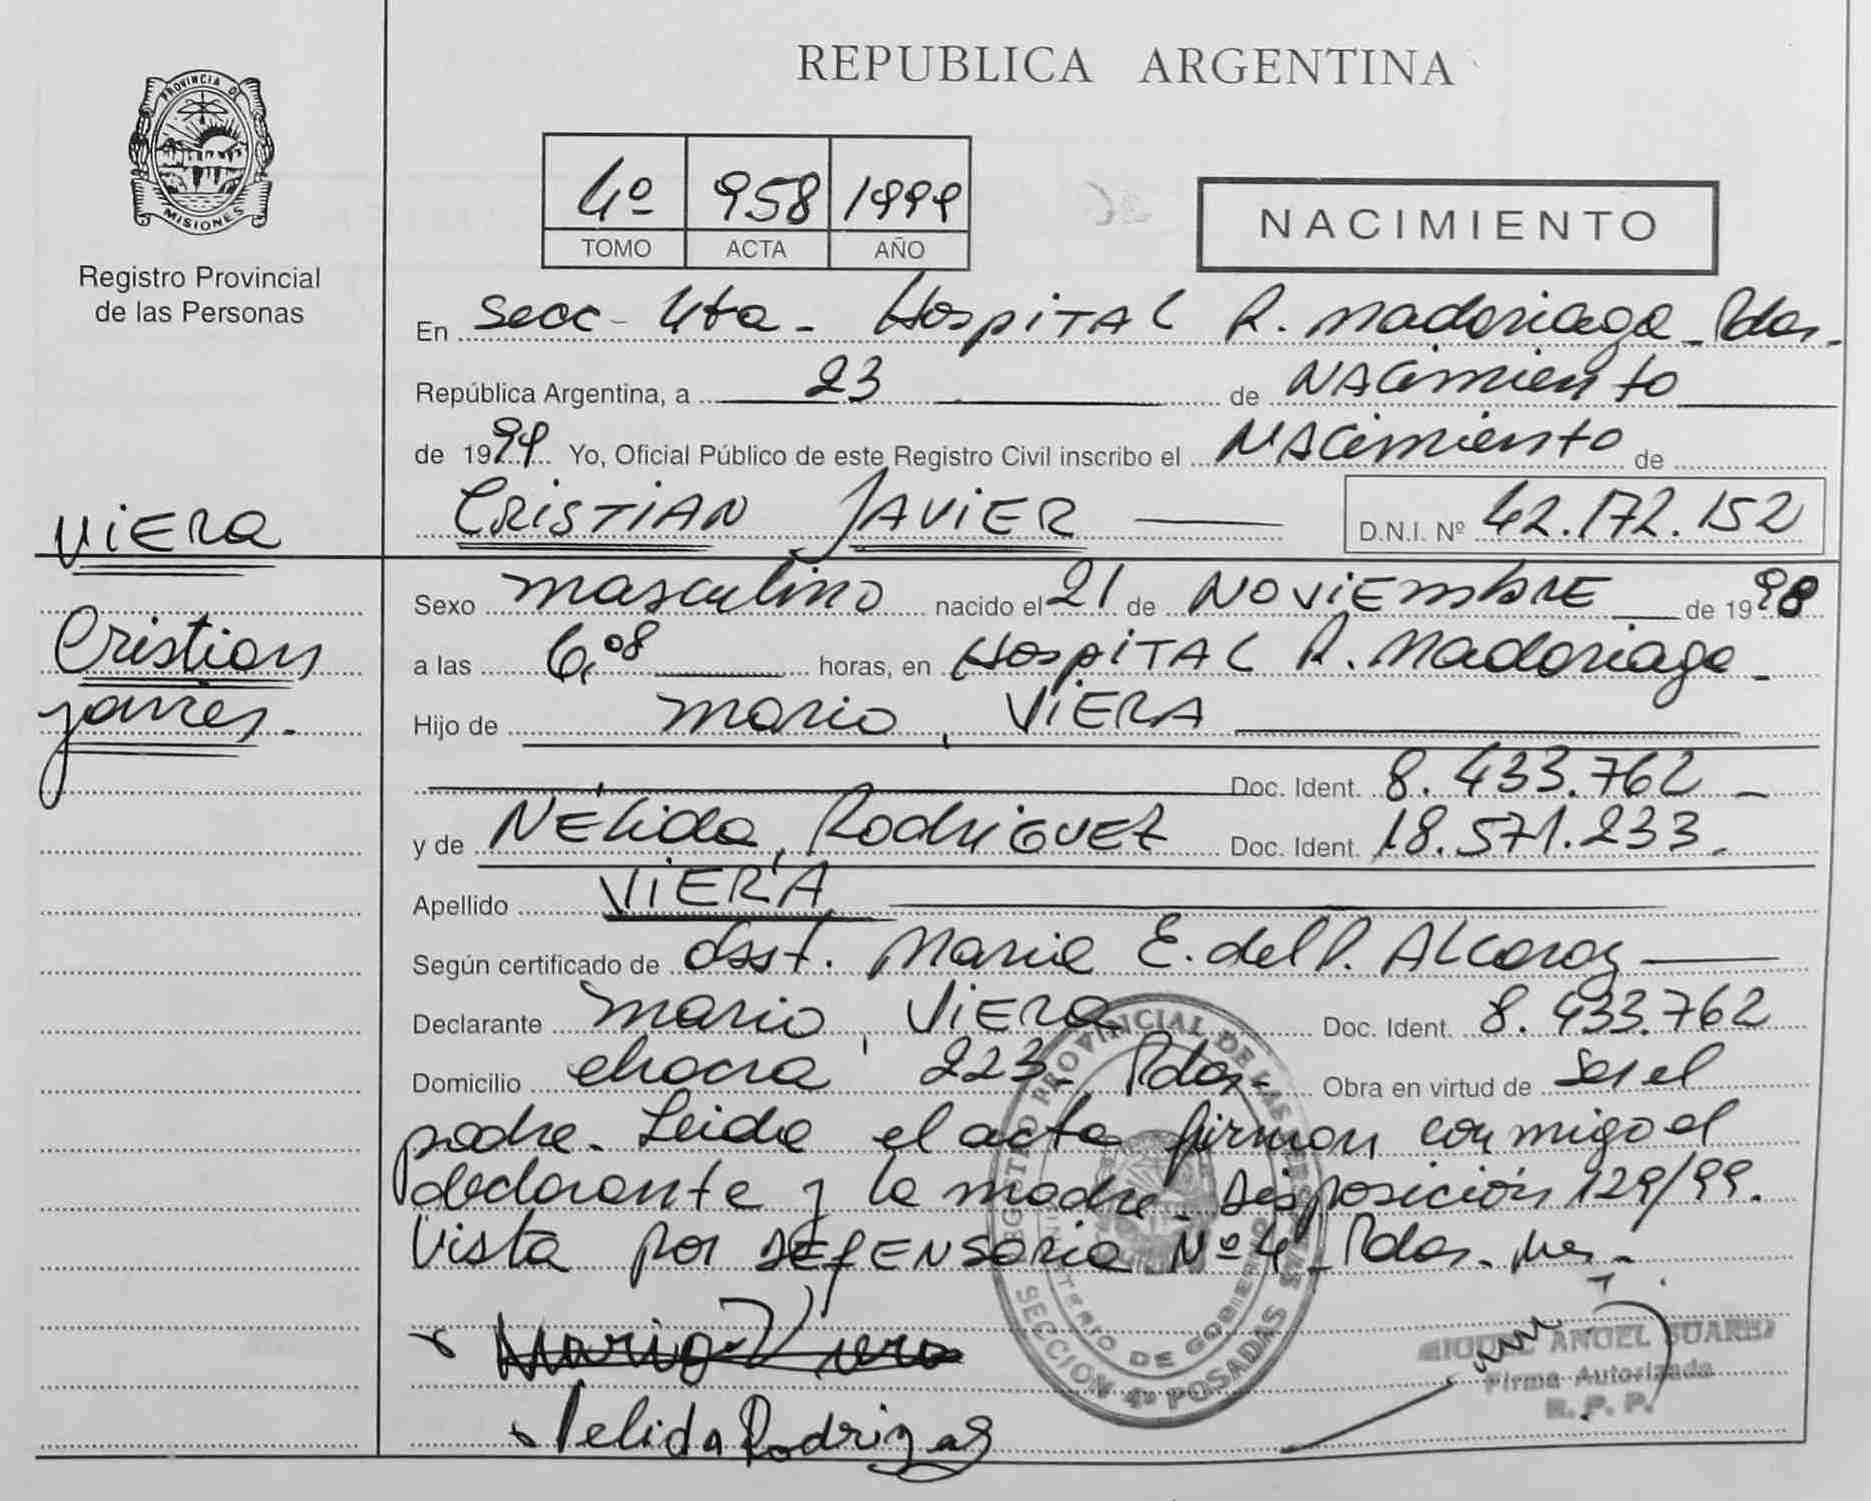 REPUBLICA ARGENTINA
PROVINCIA DE
MISIONES
Registro Provincial
de las Personas
4º 958 1999
TOMO ACTA AÑO
NACIMIENTO
En Secc- 4ta- HospiTAL R. Madariaga - Pdas.-
República Argentina, a 23 de NACimiento
de 1999 Yo, Oficial Público de este Registro Civil inscribo el NACimiento de
CRISTIAN JAViER D.N.I. Nº 42.172.152
ViERA
Cristian
javier.-
Sexo masculino nacido el 21 de NOViEmbRE de 1998
a las 6,08 horas, en HospiTAL R. Madariaga -
Hijo de mario, ViERA
Doc. Ident. 8.433.762 -
y de NÉLida, RodRiGUEZ Doc. Ident. 18.571.233.
Apellido ViERA
Según certificado de Obst. Maria E. del P. ALcaraz
Declarante mario, ViERA Doc. Ident. 8.433.762
Domicilio chacra 223- Pdas.- Obra en virtud de Ser el
padre. Leida el acta firman conmigo el
declarante y la madre. Disposición 129/99.
Vista por DEfENSoria Nº 4 - Pdas. Mes.-
Mario Viera
Nelida Rodrigez
REGISTRO PROVINCIAL DE LAS PERSONAS
MINISTERIO DE GOBIERNO
SECCION 4ª POSADAS
MIGUEL ANGEL SUAREZ
Firma Autorizada
R. P. P.